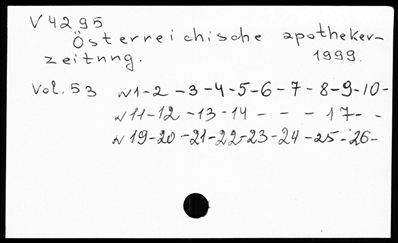 V 4295
Österreichische apotheker-
zeitnng. 1999.
Vol. 53 N1-2-3-4-5-6-7-8-9-10-
N11-12-13-14- - - -17- -
N19-20-21-22-23-24-25-26-